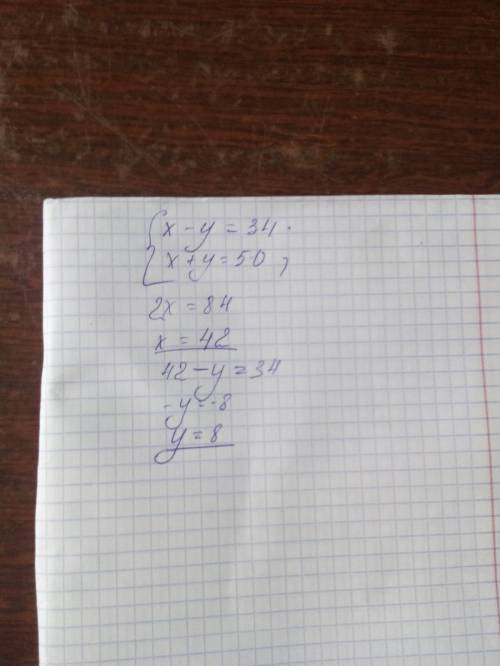 { x - y = 34.
x + y = 50,
2x = 84
x = 42
42 - y = 34
- y = -8
y = 8